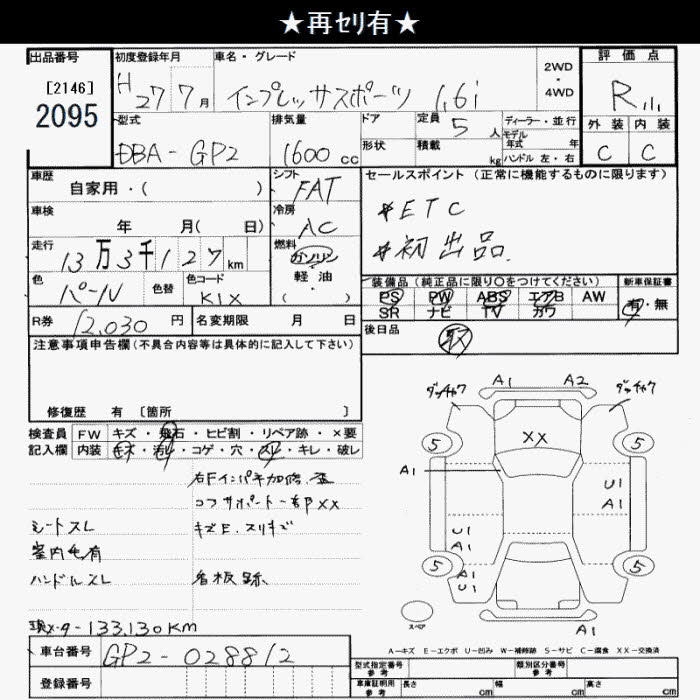 ★再セリ有★
出品番号 初度登録年月 車名・グレード 2WD・4WD 評価点
[2146]
2095
H27 7月 インプレッサスポーツ 1.6i
R
型式 排気量 ドア 定員 5人 ディーラー・並行 外装 内装
モデル年式 年
DBA-GP2 1600cc 形状 積載 kg ハンドル 左・右 C C
車歴 シフト セールスポイント(正常に機能するものに限ります)
自家用・( ) FAT
車検 冷房 *ETC
年 月( 日) AC
走行 燃料 *初出品.
13万3千127km ガソリン・軽油・( )
色 色替 色コード 装備品(純正品に限り○をつけてください) 新車保証書
パール K1X PS PW ABS エアB AW 有・無
SR ナビ TV カワ
R券 12,030円 名変期限 月 日 後日品 取
注意事項申告欄(不具合内容等は具体的に記入して下さい)
修復歴 有 [箇所 ]
検査員 FW キズ・飛石・ヒビ割・リペア跡・×要
記入欄 内装 キズ・汚レ・コゲ・穴・スレ・キレ・破レ
コアサポート一部XX
シートスレ キズE.スリキズ
室内毛有
ハンドルスレ 看板跡
現メーター133,130KM
A1 A2
XX
5 5
A1 U1
A1
U1
A1
5 5
A1
U1
A1
スペア
A-キズ E-エクボ U-凹み W-補修跡 S-サビ C-腐食 XX-交換済
車台番号 GP2-028812
登録番号
型式指定番号 参考 類別区分番号 参考
車庫証明用 参考 長さ cm 幅 cm 高さ cm